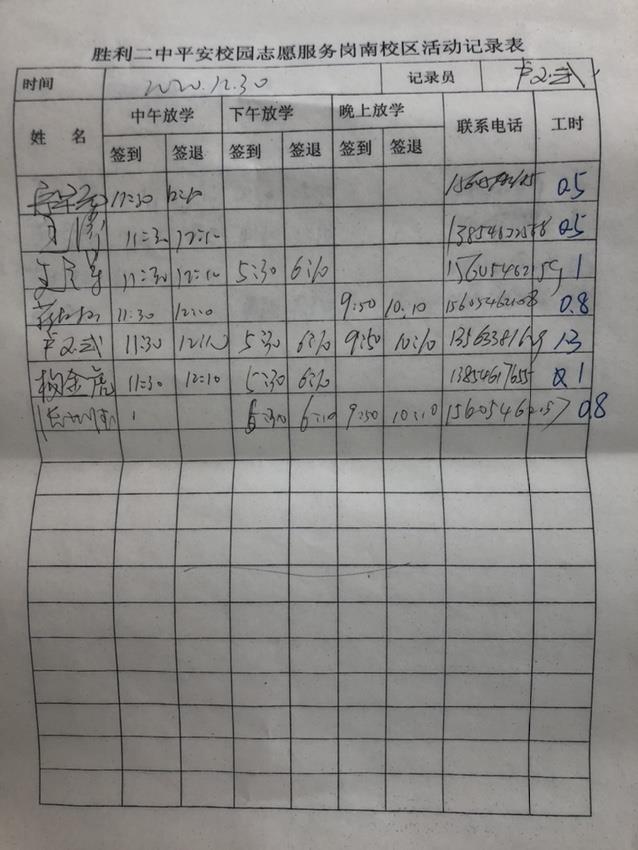 胜利二中平安校园志愿服务岗南校区活动记录表
时间 2020.12.30 记录员 卢文武
姓 名 中午放学 下午放学 晚上放学 联系电话 工时
签到 签退 签到 签退 签到 签退
11:30 12:10 0.5
11:30 12:10 0.5
11:30 12:10 5:30 6:10 15605462159 1
11:30 12:10 9:50 10:10 0.8
卢文武 11:30 12:10 5:30 6:10 9:50 10:10 1.3
杨金虎 11:30 12:10 5:30 6:10 13854617655 1
5:30 6:10 9:50 10:10 15605462157 0.8